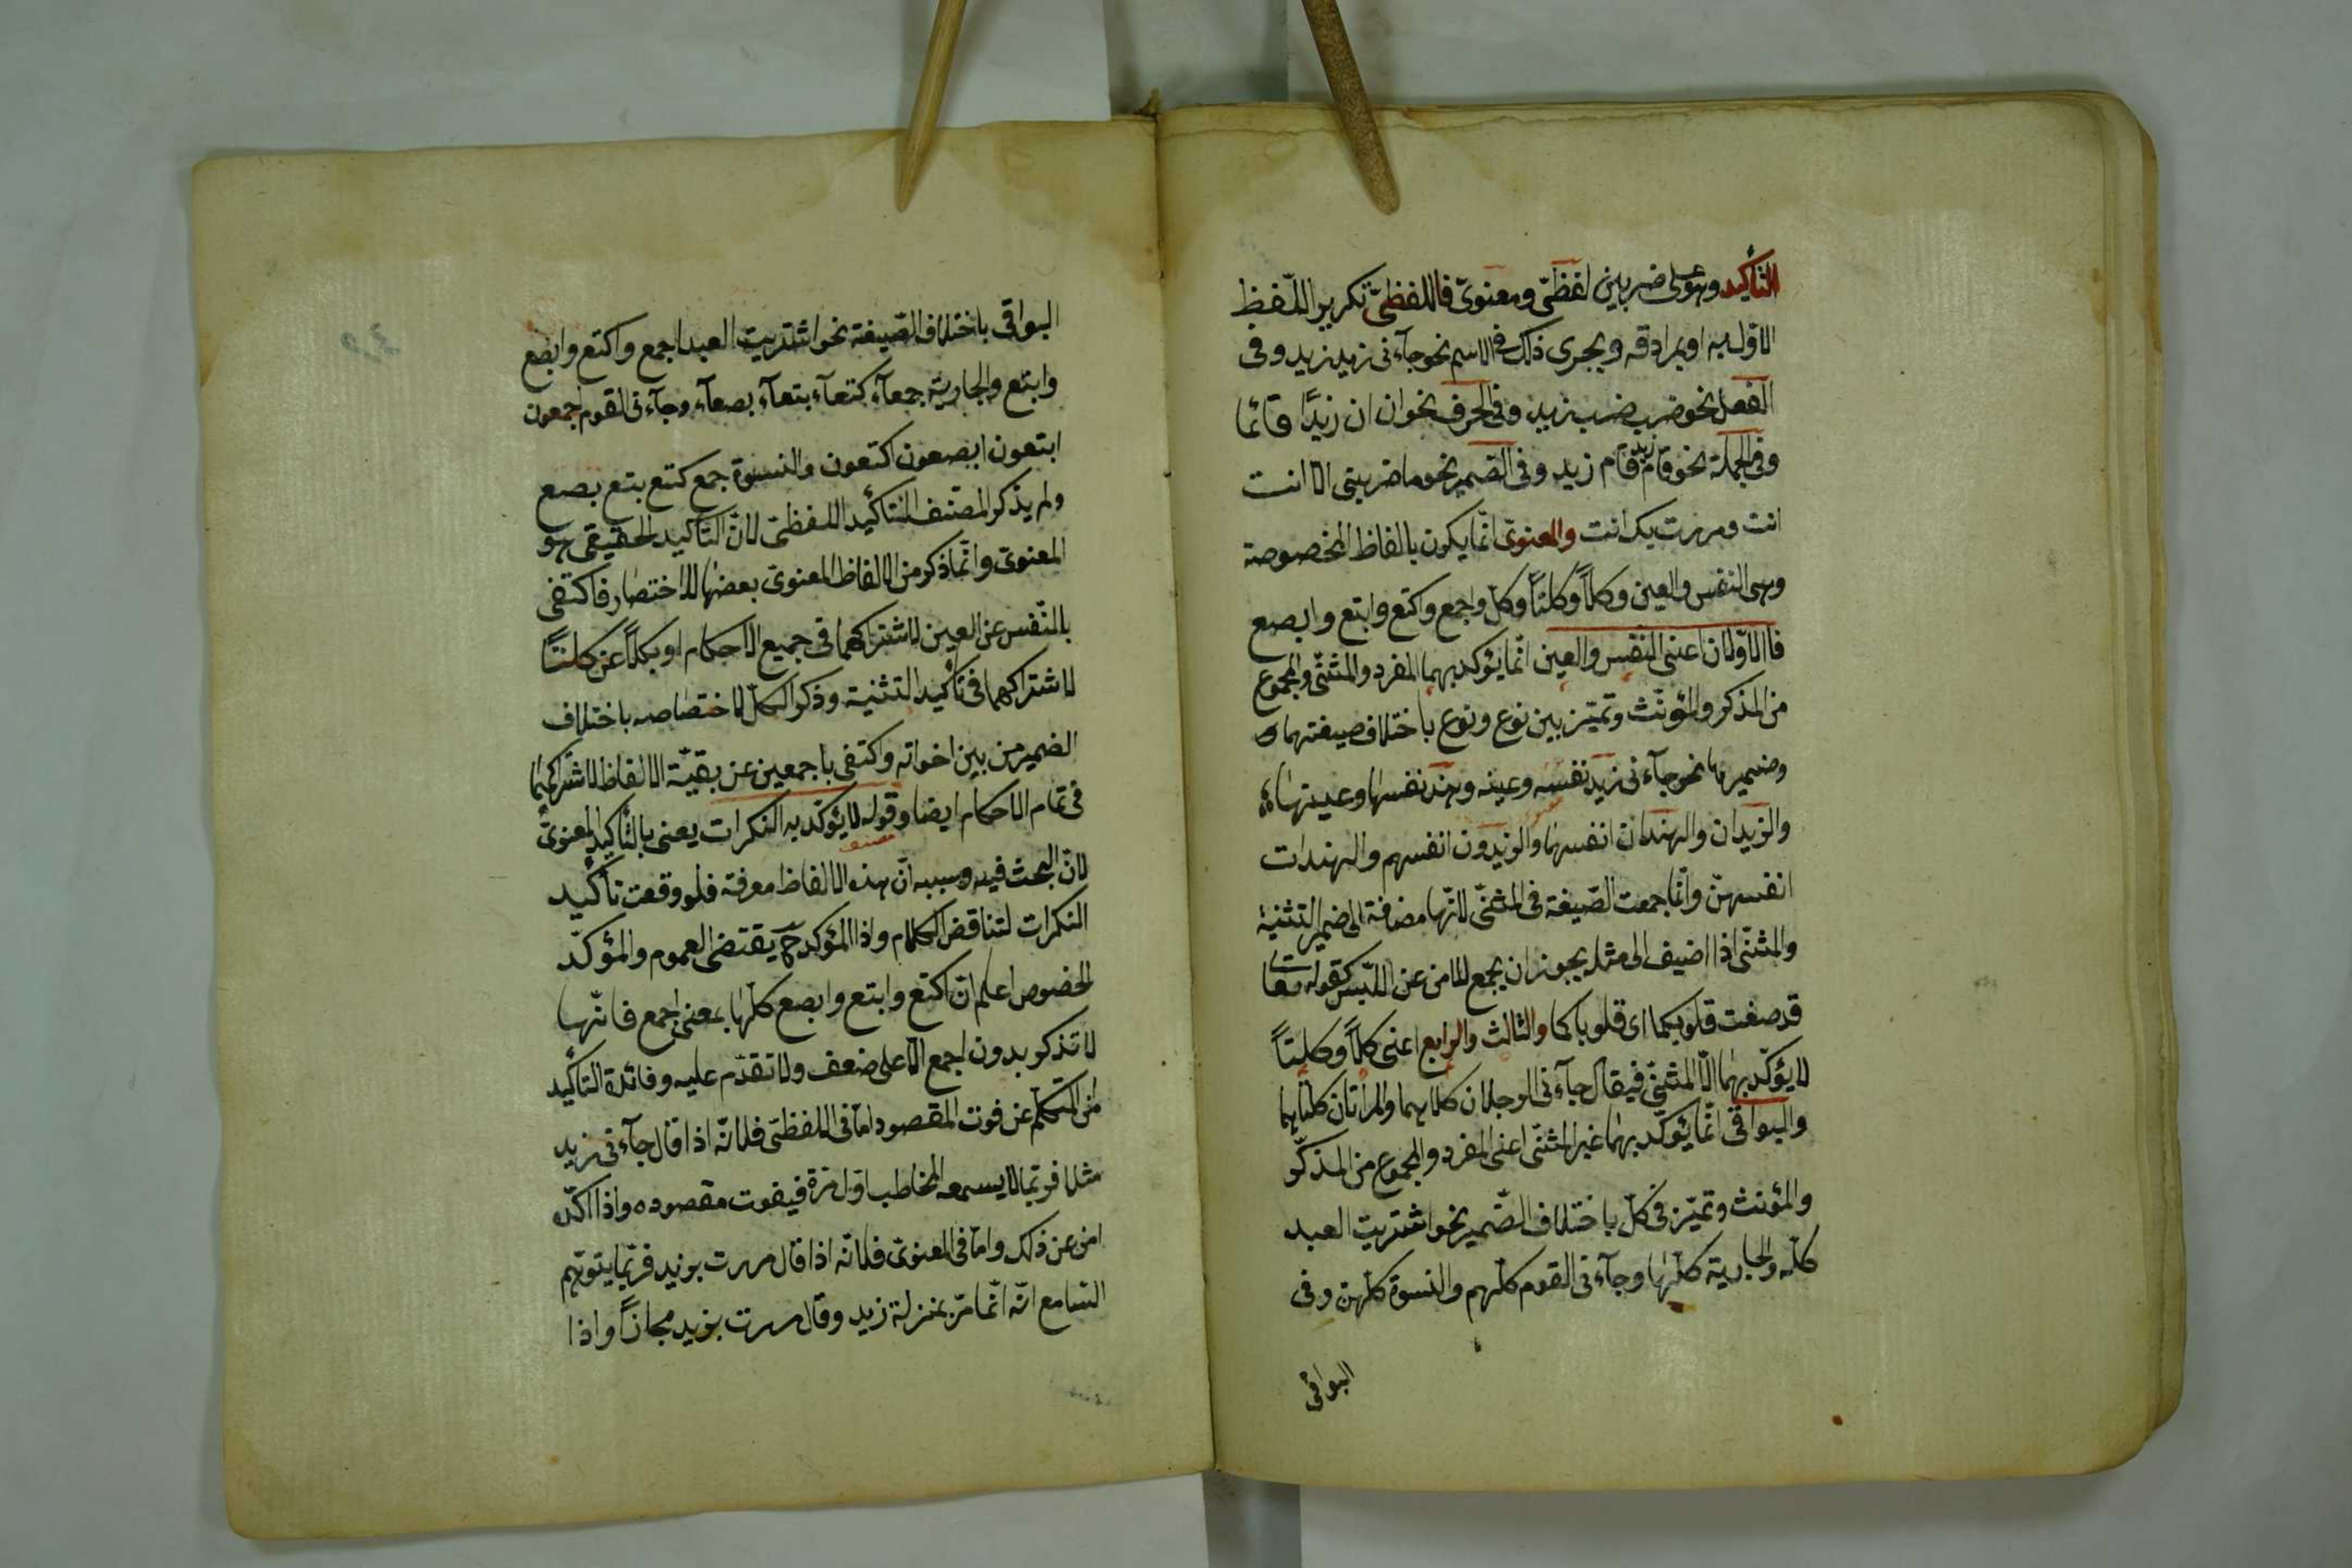 التأكيد وهو على ضربين لفظىّ ومعنوىّ فاللفظىّ تكرير اللّفظ
الاوّل به او بمرادفه ويجرى ذلك فى الاسم نحو جآءنى زيد زيد وفى
الفعل نحو ضرب ضرب زيد وفى الحرف نحو ان ان زيدًا قائما
وفى الجملة نحو قام زيد قام زيد وفى الضمير نحو ما ضربنى الا انت
انت ومررت بك انت والمعنوىّ انّما يكون بالفاظ المخصوصة
وهى النفس والعين وكلاً وكلتاً وكل واجمع واكتع وابتع وابصع
فالاوّلان اعنى النفس والعين انّما يؤكد بهما المفرد والمثنّى والمجموع
من المذكر والمؤنّث وتميّز بين نوع ونوع باختلاف صيغتهما
وضميرها نحو جآءنى زيد نفسه وعينه وهند نفسها وعينها
والزيدان والهندان انفسهما والزيدون انفسهم والهندات
انفسهنّ وانّما جمعت الصّيغة فى المثنّى لانّها مضافة الى ضمير التثنية
والمثنّى اذا اضيف الى مثله يجوز ان يجمع للامن عن اللّبس كقوله تعا
قد صغت قلوبكما اى قلوباكما والثالث والرابع اعنى كلاً وكلتاً
لا يؤكّد بهما الّا المثنّى فيقال جآءنى الرجلان كلاهما والمراتان كلتاهما
والبواقى انّما يؤكّد بها غير المثنّى اعنى المفرد والمجموع من المذكّر
والمؤنث وتميّز فى كلّ باختلاف الضّمير نحو اشتريت العبد
كلّه والجارية كلّها وجآءنى القوم كلّهم والنسوة كلّهن وفى
البواقى
البواقى باختلاف الصّيغة نحو اشتريت العبد اجمع واكتع وابصع
وابتع والجارية جمعآء كتعآء بتعآء بصعآء وجآءنى القوم اجمعون
ابتعون ابصعون اكتعون والنسوة جمع كتع بتع بصع
ولم يذكر المصنف التأكيد اللفظىّ لانّ التأكيد الحقيقى هو
المعنوىّ وانّما ذكر من الالفاظ المعنوىّ بعضها للاختصار فاكتفى
بالنّفس عن العين لاشتراكهما فى جميع الاحكام او بكلاً عن كلتاً
لاشتراكهما فى تأكيد التثنية وذكر الكلّ لاختصاصه باختلاف
الضمير من بين اخواته واكتفى باجمعين عن بقيّة الالفاظ لاشتراكهما
فى تمام الاحكام ايضا وقوله لا يؤكّد به النكرات يعنى بالتأكيد المعنوىّ
لانّ البحث فيه وسببه انّ هذه الالفاظ معرفة فلو وقعت تأكيد
النكرات لتناقض الكلام واذا المؤكد ح يقتضى العموم والمؤكّد
الخصوص اعلم انّ اكتع وابتع وابصع كلّها بمعنى اجمع فانّها
لا تذكر بدون اجمع الّا على ضعف ولا تقدّم عليه وفائدة التاكيد
امن المتكلّم عن فوت المقصود امّا فى اللفظىّ فلانّه اذا قال جآءنى زيد
مثلا فربّما لا يسمعه المخاطب اوّل مرّة فيفوت مقصوده واذا اكّده
امن عن ذلك وامّا فى المعنوىّ فلانّه اذا قال مررت بزيد فربّما يتوهّم
السّامع انّه انّما مرّ بمنزلة زيد وقال مررت بزيد مجازاً واذا